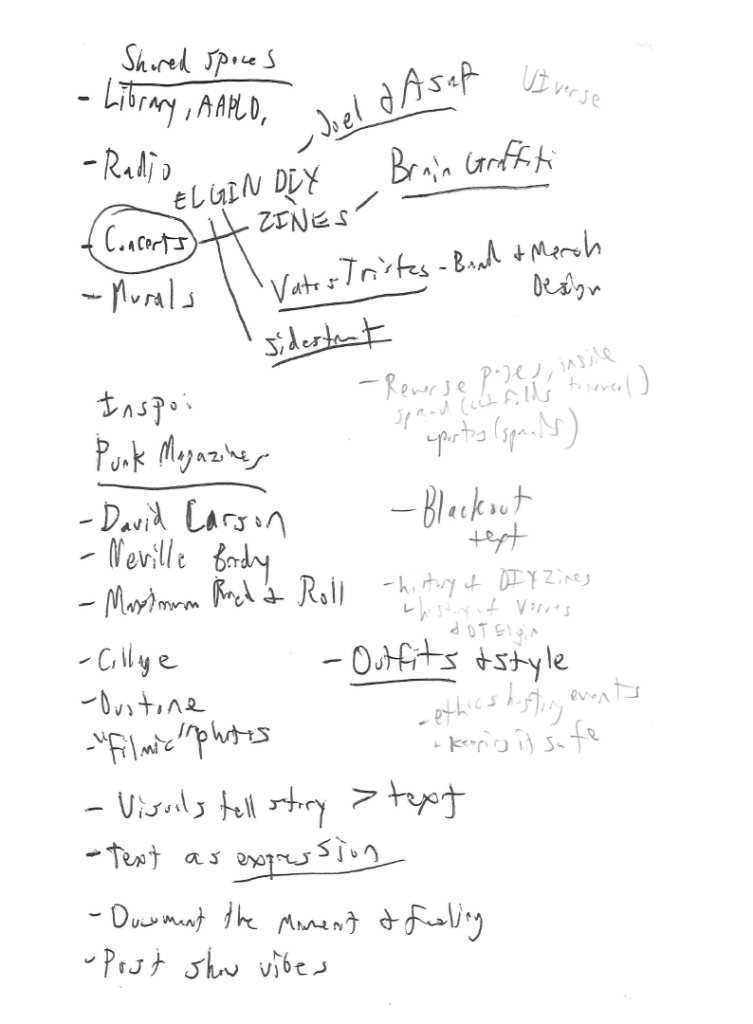 Shared spaces
- Library, AAPLD,
Joel & Asaf
UIverse
- Radio
ELGIN DIY
ZINES
Brain Graffiti
- Concerts
- Murals
Vatos Tristes - Band & Merch
Design
Sidestreet
- Reverse pages, inside
spread (cut folds)
posters (spreads)
Inspo:
Punk Magazines
- David Carson
- Neville Brody
- Maximum Rock & Roll
- Blackout
text
- history of DIY Zines
- history of Venues
& DT Elgin
- Collage
- Outfits & style
- Duotone
- "Filmic" photos
- ethics hosting events
- keeping it safe
- Visuals tell story > text
- Text as expression
- Document the moment & feeling
- Post show vibes